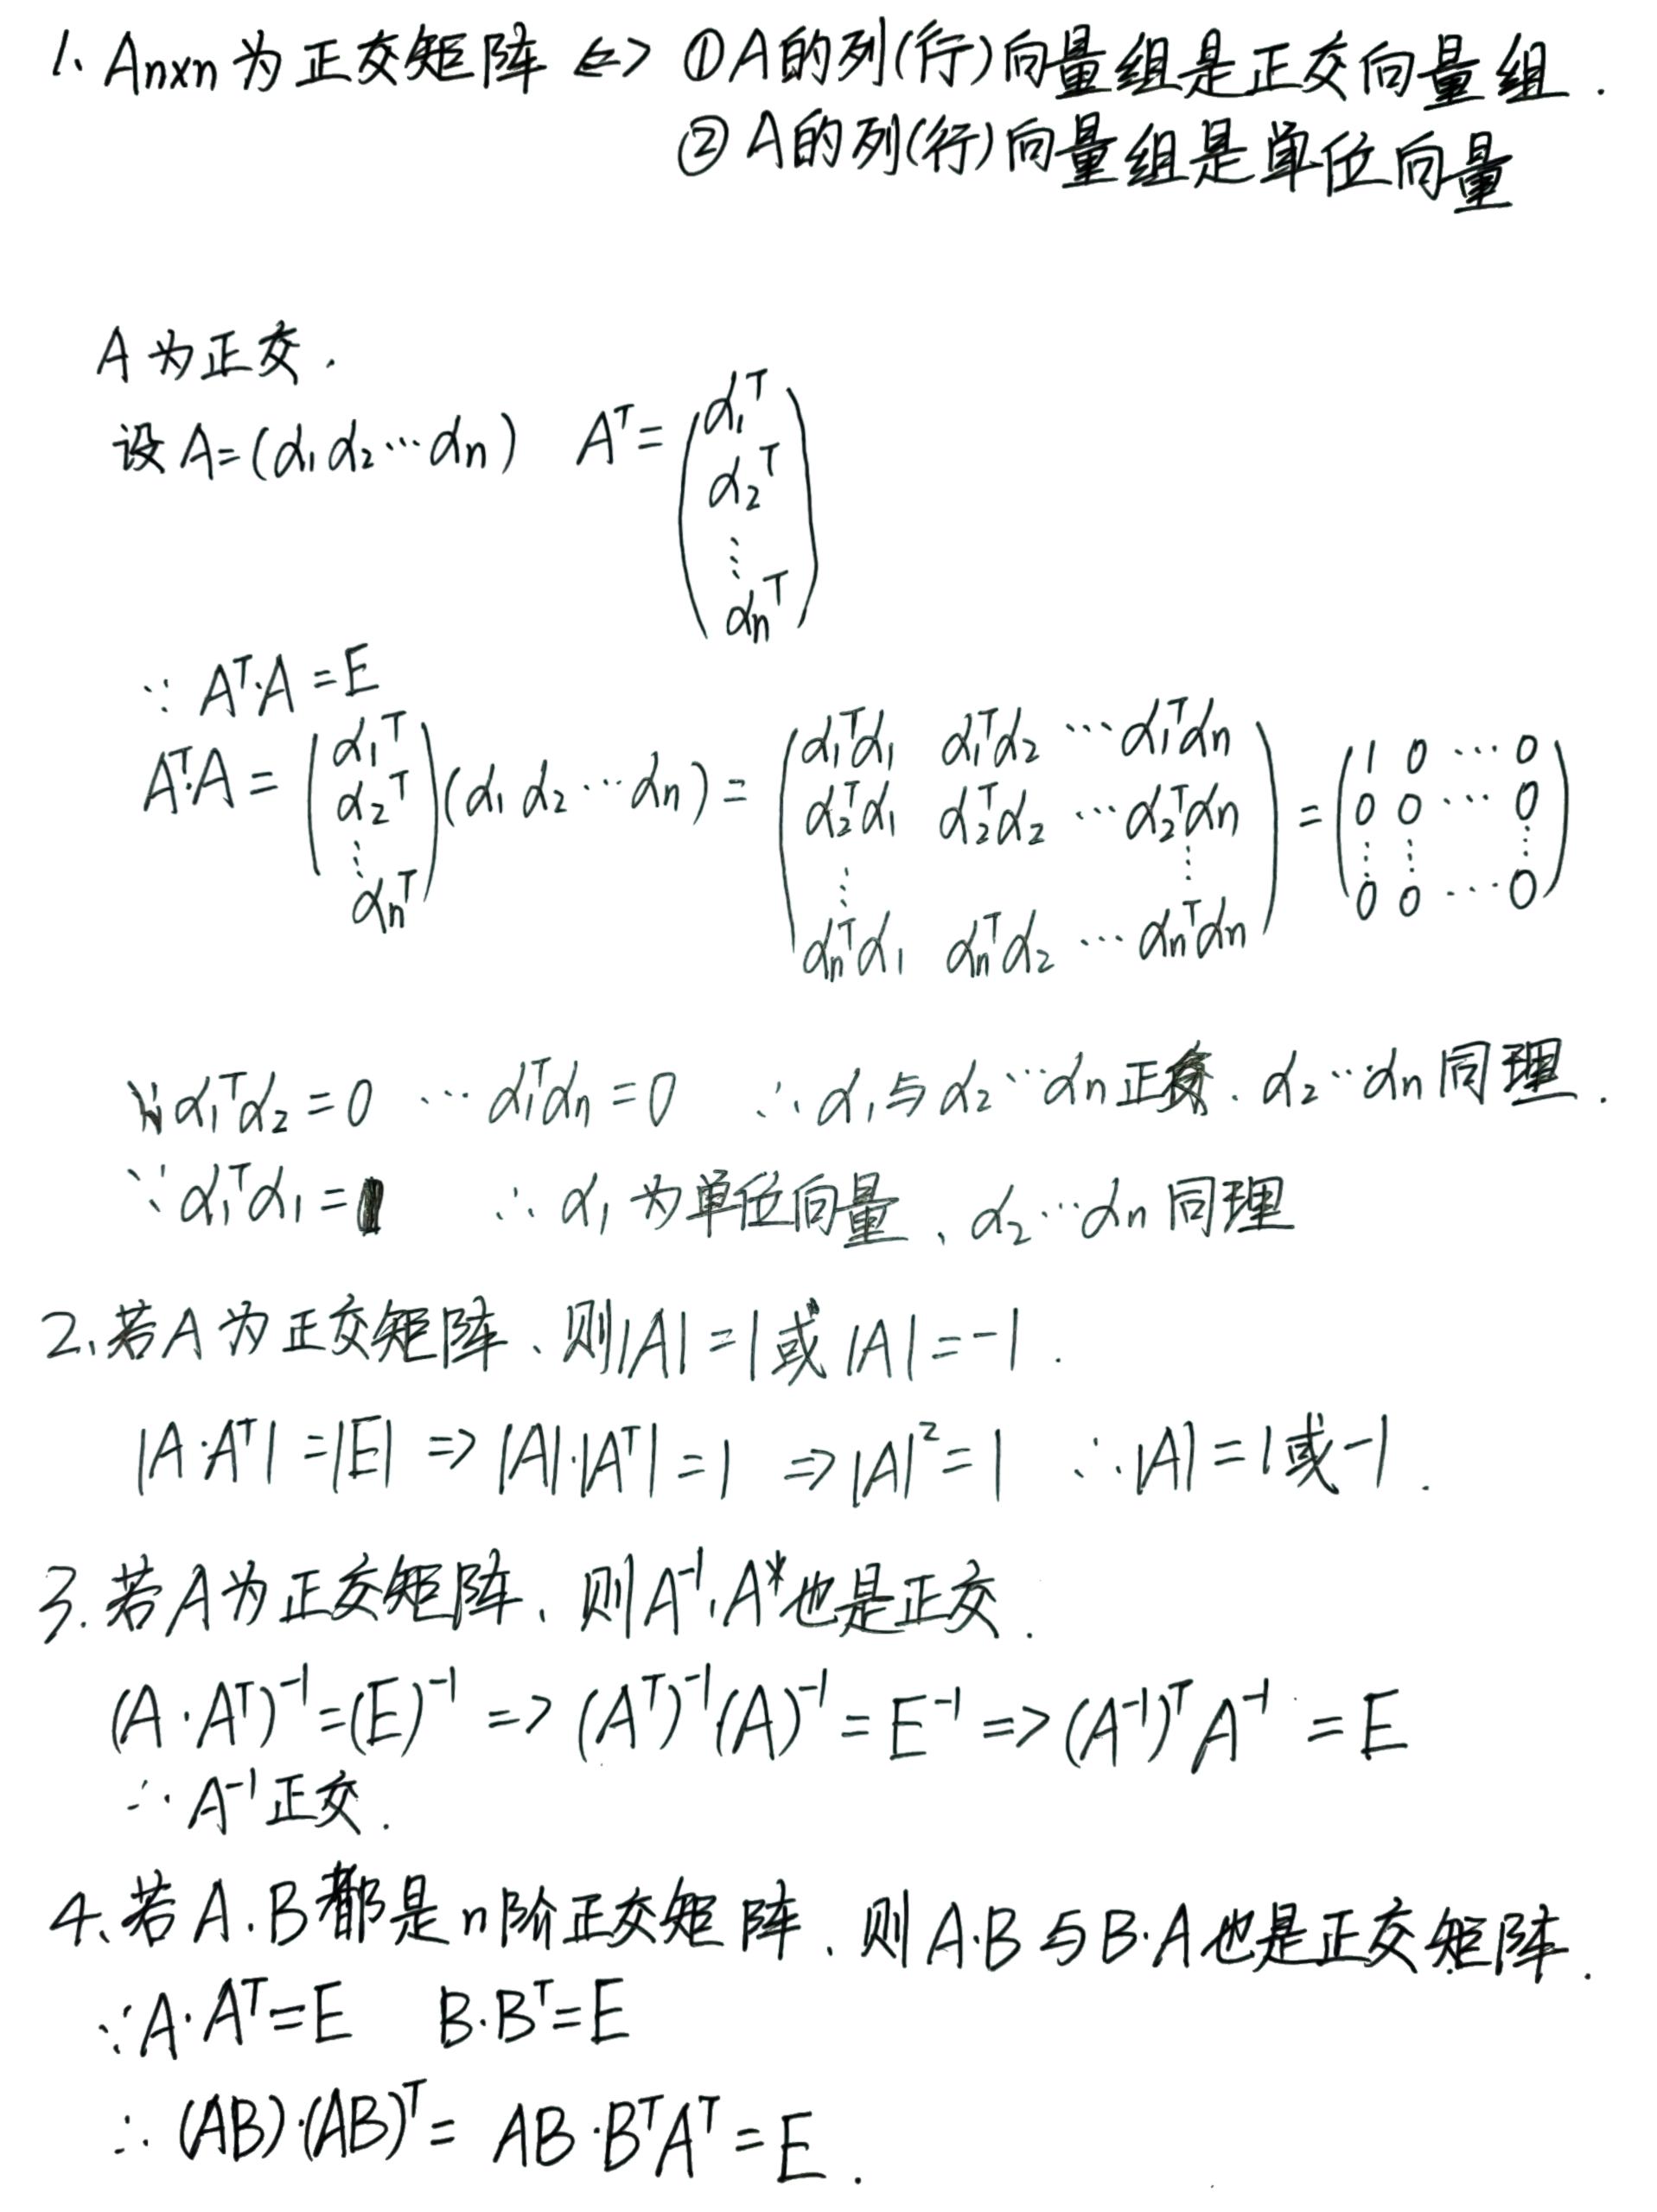 1、Anxn为正交矩阵 <=> ①A的列(行)向量组是正交向量组.
②A的列(行)向量组是单位向量
A为正交.
设A=(α₁α₂…αn) Aᵀ=(α₁ᵀ α₂ᵀ ⋮ αnᵀ)
∵ Aᵀ·A=E
Aᵀ·A=(α₁ᵀ α₂ᵀ ⋮ αnᵀ)(α₁ α₂…αn)=(α₁ᵀα₁ α₁ᵀα₂ …α₁ᵀαn α₂ᵀα₁ α₂ᵀα₂ …α₂ᵀαn ⋮ ⋮ αnᵀα₁ αnᵀα₂ …αnᵀαn)=(1 0 … 0 0 0 … 0 ⋮ ⋮ ⋮ 0 0 … 0)
∵α₁ᵀα₂=0 …α₁ᵀαn=0 ∴α₁与α₂…αn正交、α₂…αn同理.
∵α₁ᵀα₁=1 ∴α₁为单位向量、α₂…αn同理
2、若A为正交矩阵、则|A|=1或|A|=-1.
|A·Aᵀ|=|E| => |A|·|Aᵀ|=1 => |A|²=1 ∴|A|=1或-1.
3.若A为正交矩阵、则A⁻¹、A*也是正交.
(A·Aᵀ)⁻¹=(E)⁻¹ => (Aᵀ)⁻¹(A)⁻¹=E⁻¹ => (A⁻¹)ᵀA⁻¹=E
∴A⁻¹正交.
4、若A.B都是n阶正交矩阵、则A·B与B·A也是正交矩阵.
∵A·Aᵀ=E B·Bᵀ=E
∴(AB)·(AB)ᵀ=AB·BᵀAᵀ=E.